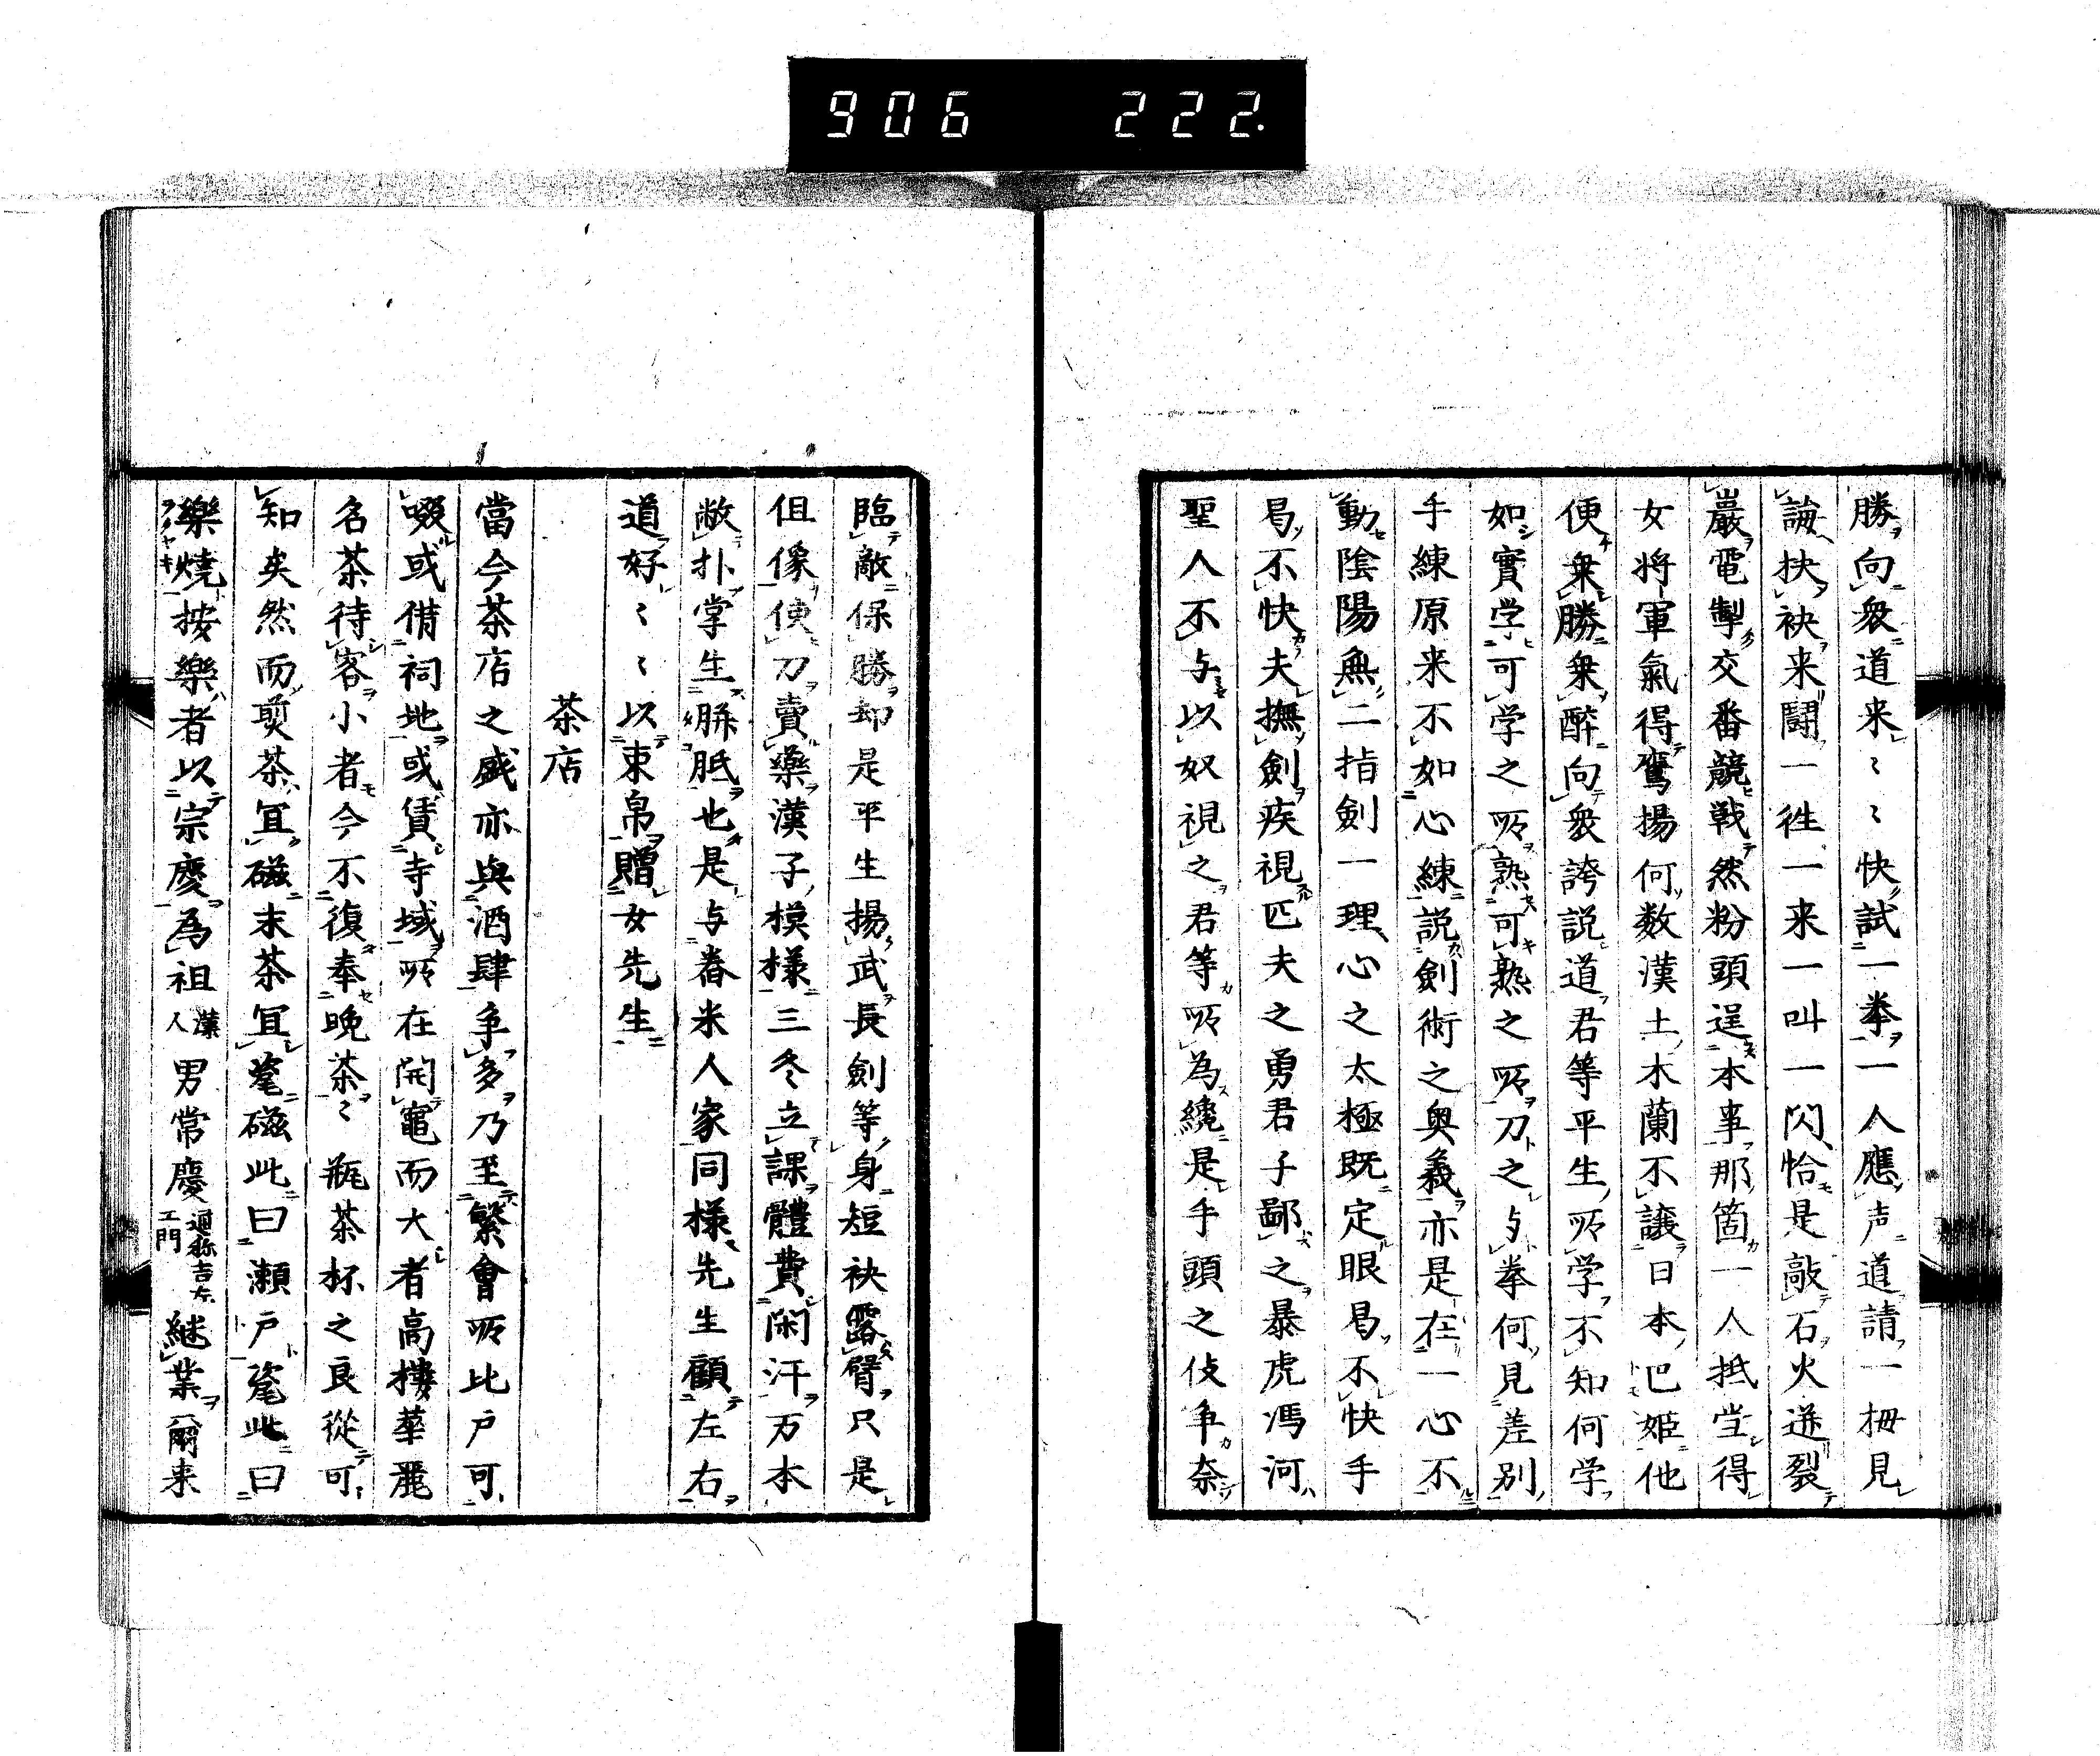 906 222.
勝向衆道来〻〻快試一拳一人應声道請一栂見
論抉袂来闘一徃一来一叫一閃恰是敲石火迸裂
巖電掣交番競戦然粉頭逞本事那箇一人抵当得
女将軍氣得鷹揚何数漢土木蘭不譲日本巴姫他
便乗勝乗醉向衆誇説道君等平生所学不知何学
如實学可学之所熟可熟之所刀之与拳何見差別
手練原来不如心練説劍術之奥義亦是在一心不
動陰陽無二指劍一理心之太極既定眼曷不快手
曷不快夫撫劍疾視匹夫之勇君子鄙之暴虎馮河
聖人不与以奴視之君等所為纔是手頭之伎争奈
臨敵保勝却是平生揚武長劍等身短袂露臂只是
伹像使刀賣藥漢子模様三冬立課體費閑汗万本
敝扑掌生胼胝也是与舂米人家同様先生顧左右
道好〻〻以束帛贈女先生
茶店
當今茶店之盛亦與酒肆争多乃至繁會所比戸可
啜或借祠地或賃寺域所在開竈而大者高樓華麗
名茶待客小者今不復奉晩茶〻瓶茶杯之良從可
知矣然而煎茶冝磁末茶冝窰磁此曰瀬戸窰此曰
樂燒按樂者以宗慶為祖漢人男常慶通称吉左エ門継業爾来